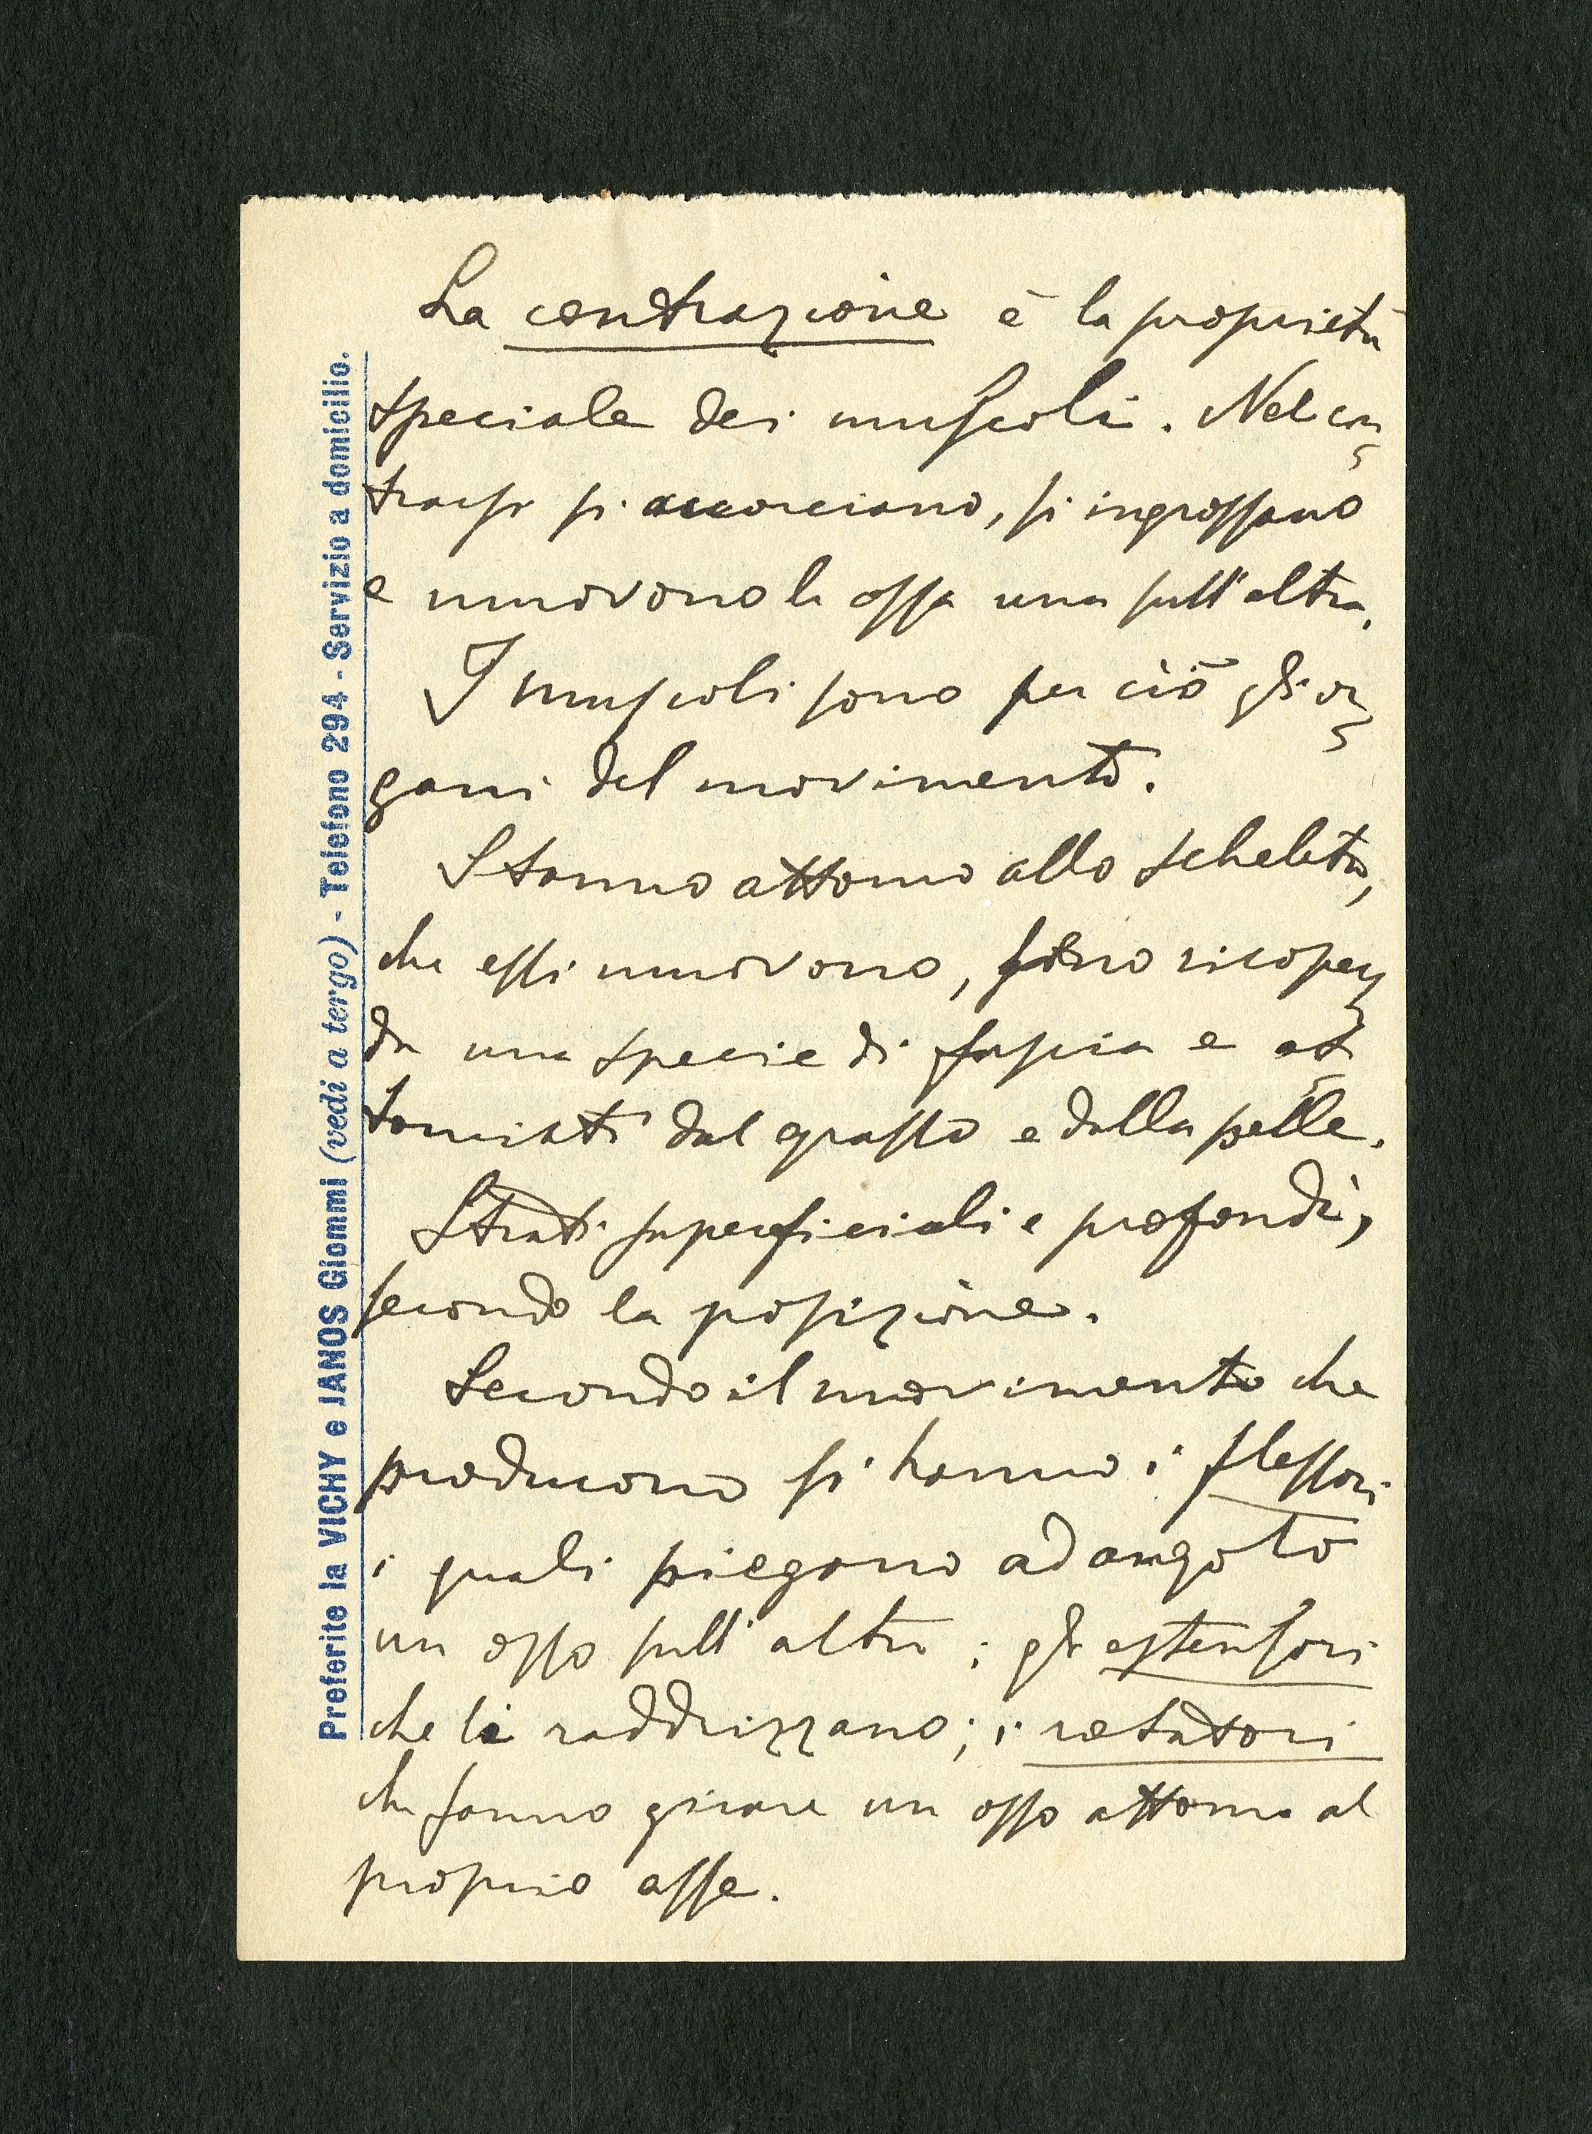 La contrazione è la proprietà
speciale dei muscoli. Nel con
trarsi si accorciano, si ingrossano
e muovono le ossa una sull'altra.
I muscoli sono per ciò gli or
gani del movimento.
Stanno attorno allo scheletro,
che essi muovono, sono ricoper
da una specie di fascia e at
torniati dal grasso e dalla pelle.
Strati superficiali e profondi,
secondo la posizione.
Secondo il movimento che
producono si hanno i flessori
i quali piegano ad angolo
un osso sull'altro; gli estensori
che li raddrizzano; i rotatori
che fanno girare un osso attorno al
proprio asse.
Preferite la VICHY e JANOS Giommi (vedi a tergo) - Telefono 294 - Servizio a domicilio.